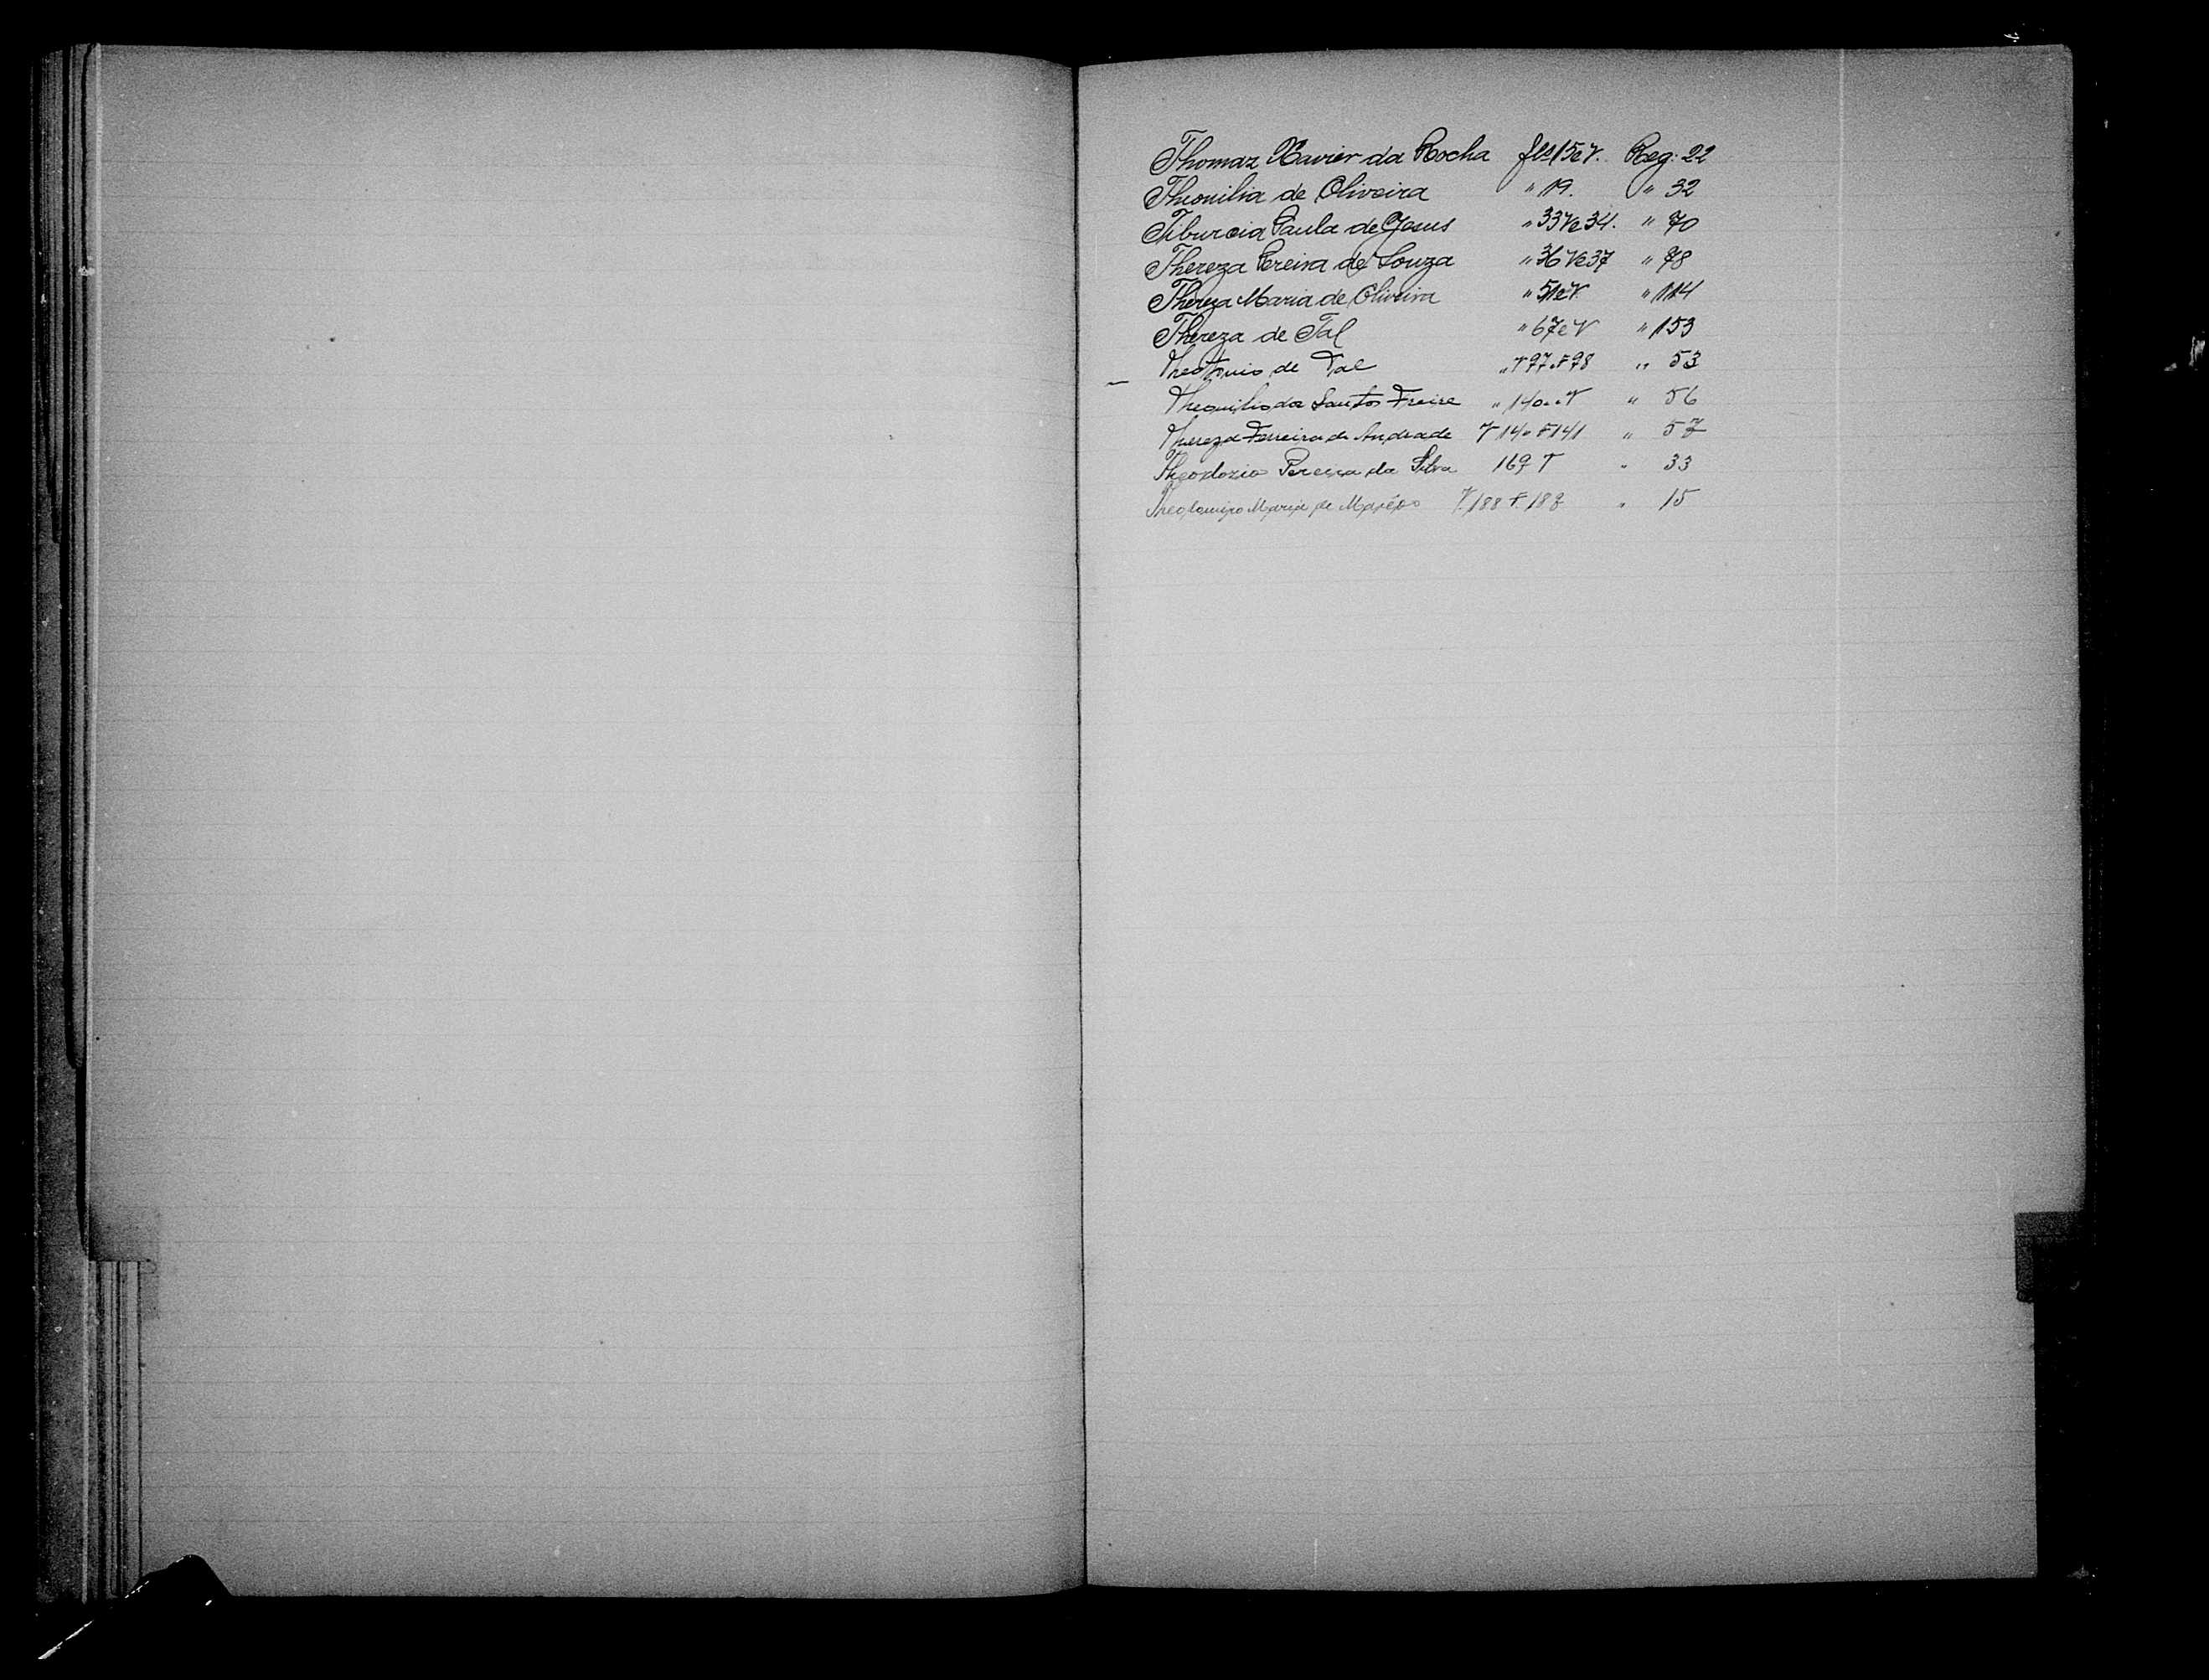 Thomaz Xavier da Rocha fls 15 e V. Reg: 22
Theonilia de Oliveira " 19. " 32
Tiburcia Paula de Jesus " 33 V e 34. " 70
Thereza Pereira de Souza " 36 V e 37 " 78
Thereza Maria de Oliveira " 51 e V " 114
Thereza de Tal " 67 e V " 153
Theotonio de Tal " V 97 F 98 " 53
dos Santos Freire " 140 V " 56
Thereza Ferreira de Andrade V 140 F 141 " 57
Theodozio Pereira da Silva 169 " 33
Maria de V. 188 F. 18 " 15